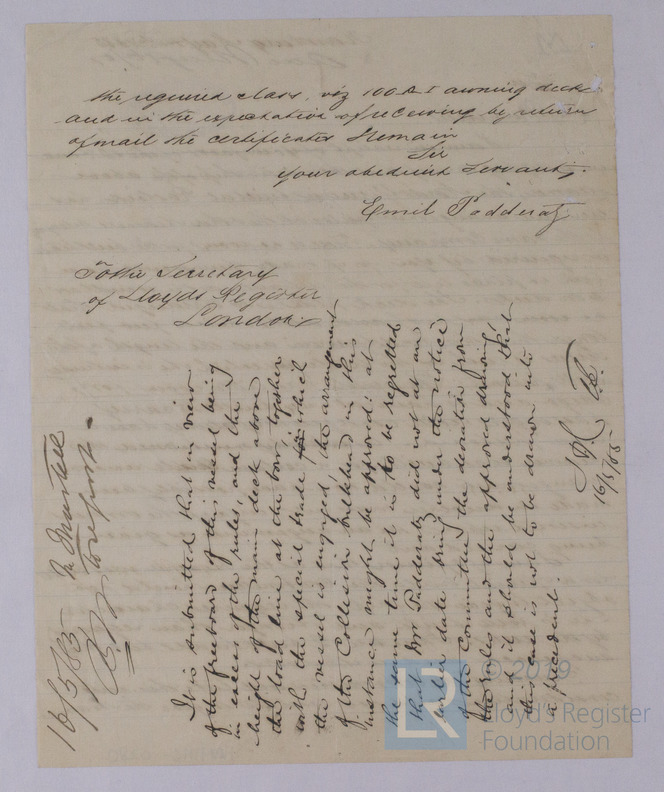 the required class, viz 100 A 1 awning deck
and in the expectation of receiving by return
of mail the certificates I remain
Sir
Your obedient Servant,
Emil Padderatz
To the Secretary
of Lloyds Register
London
It is submitted that in view
of the freeboard of this vessel being
in excess of the rules, and the
height of the main deck above
the load line at the bow, together
with the special trade in which
the vessel is engaged, the arrangement
of the Collision bulkhead in this
instance might be approved: at
the same time it is to be regretted
that Mr Padderatz did not at an
earlier date bring under the notice
of the Committee the deviation from
the rules and the approved drawing,
and it should be understood that
this case is not to be drawn into
a precedent.
16/5/85
Mr Martell
to report
16/5/85
© 2019
LR
Lloyd's Register
Foundation